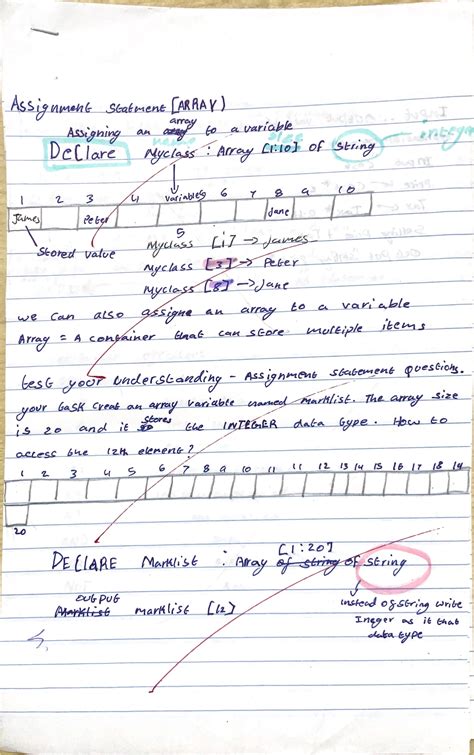 Assignment Statment [ARRAY)
array
Assigning an array to a variable
name size
DeClare Myclass : Array [1:10] of string integer
1 2 3 4 variables 6 7 8 9 10
James Peter Jane
5
Stored value Myclass [1] → James
Myclass [3] → Peter
Myclass [8] → Jane
we can also assigne an array to a variable
Array = A container that can store multiple items
test your understanding - Assignment statement questions.
your task creat an array variable named marklist. The array size
stores
is 20 and it the INTEGER data type. How to
access the 12th element?
1 2 3 4 5 6 7 8 9 10 11 12 13 14 15 16 17 18 19
20
[1:20]
DEClARE Marklist : Array of string of string
OUTPUT
Marklist marklist [12]
instead of string write
Ineger as it that
data type